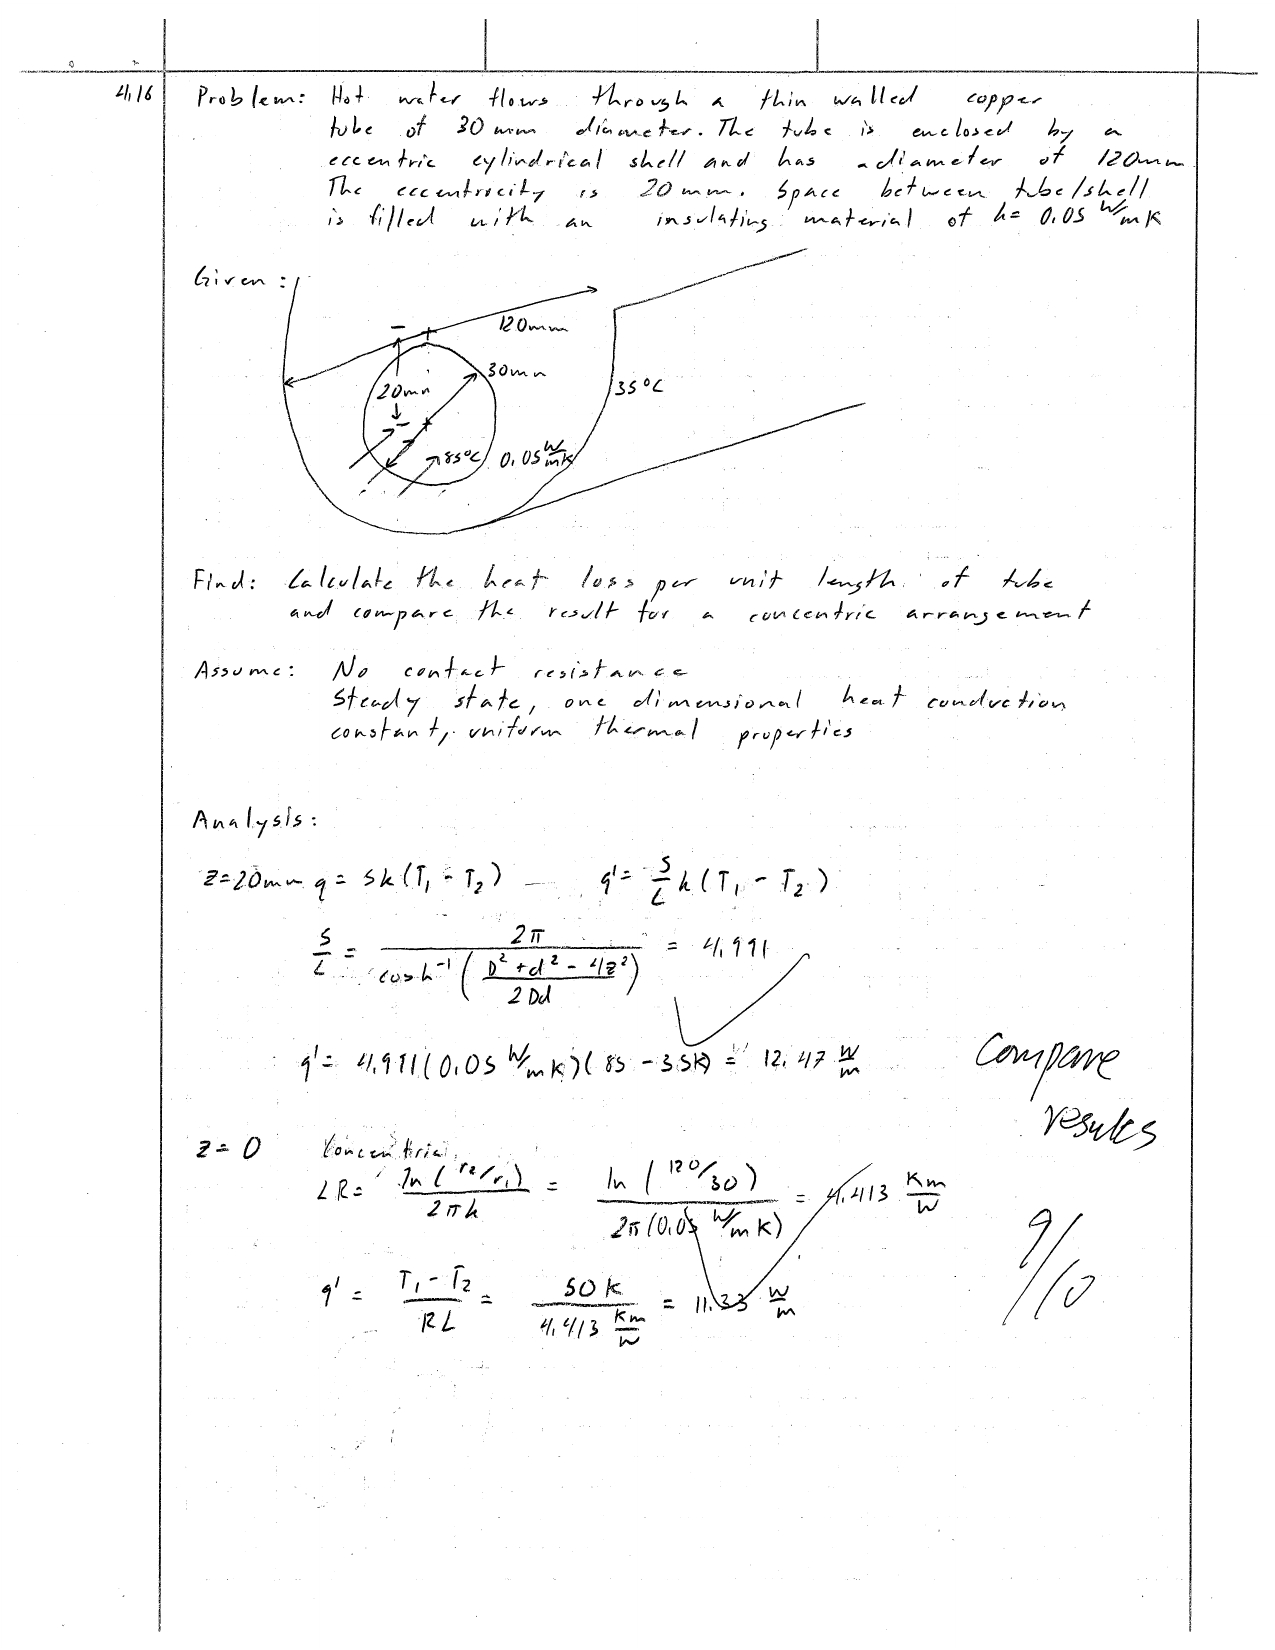 4.16 Problem: Hot water flows through a thin walled copper
tube of 30 mm diameter. The tube is enclosed by a
eccentric cylindrical shell and has a diameter of 120mm
The eccentrocity is 20 mm. Space between tube/shell
is filled with an insulating material of k= 0.05 W/mK
Given:
120mm
30mm
20mm
35°C
85°C
0.05 W/mK
Find: Calculate the heat loss per unit length of tube
and compare the result for a concentric arrangement
Assume: No contact resistance
Steady state, one dimensional heat conduction
constant, uniform thermal properties
Analysis:
z=20mm q = Sk(T₁ - T₂) — q' = S/L k (T₁ - T₂)
S/L = 2π / cosh⁻¹((D² + d² - 4z²)/2Dd) = 4.991
q' = 4.991(0.05 W/mK)(85 - 35K) = 12.47 W/m
Compare
results
z = 0 Concentric
LR = ln(r₂/r₁)/2πk = ln(120/30)/2π(0.05 W/mK) = 4.413 Km/W
9/10
q' = T₁ - T₂/RL = 50 K/4.413 Km/W = 11.33 W/m